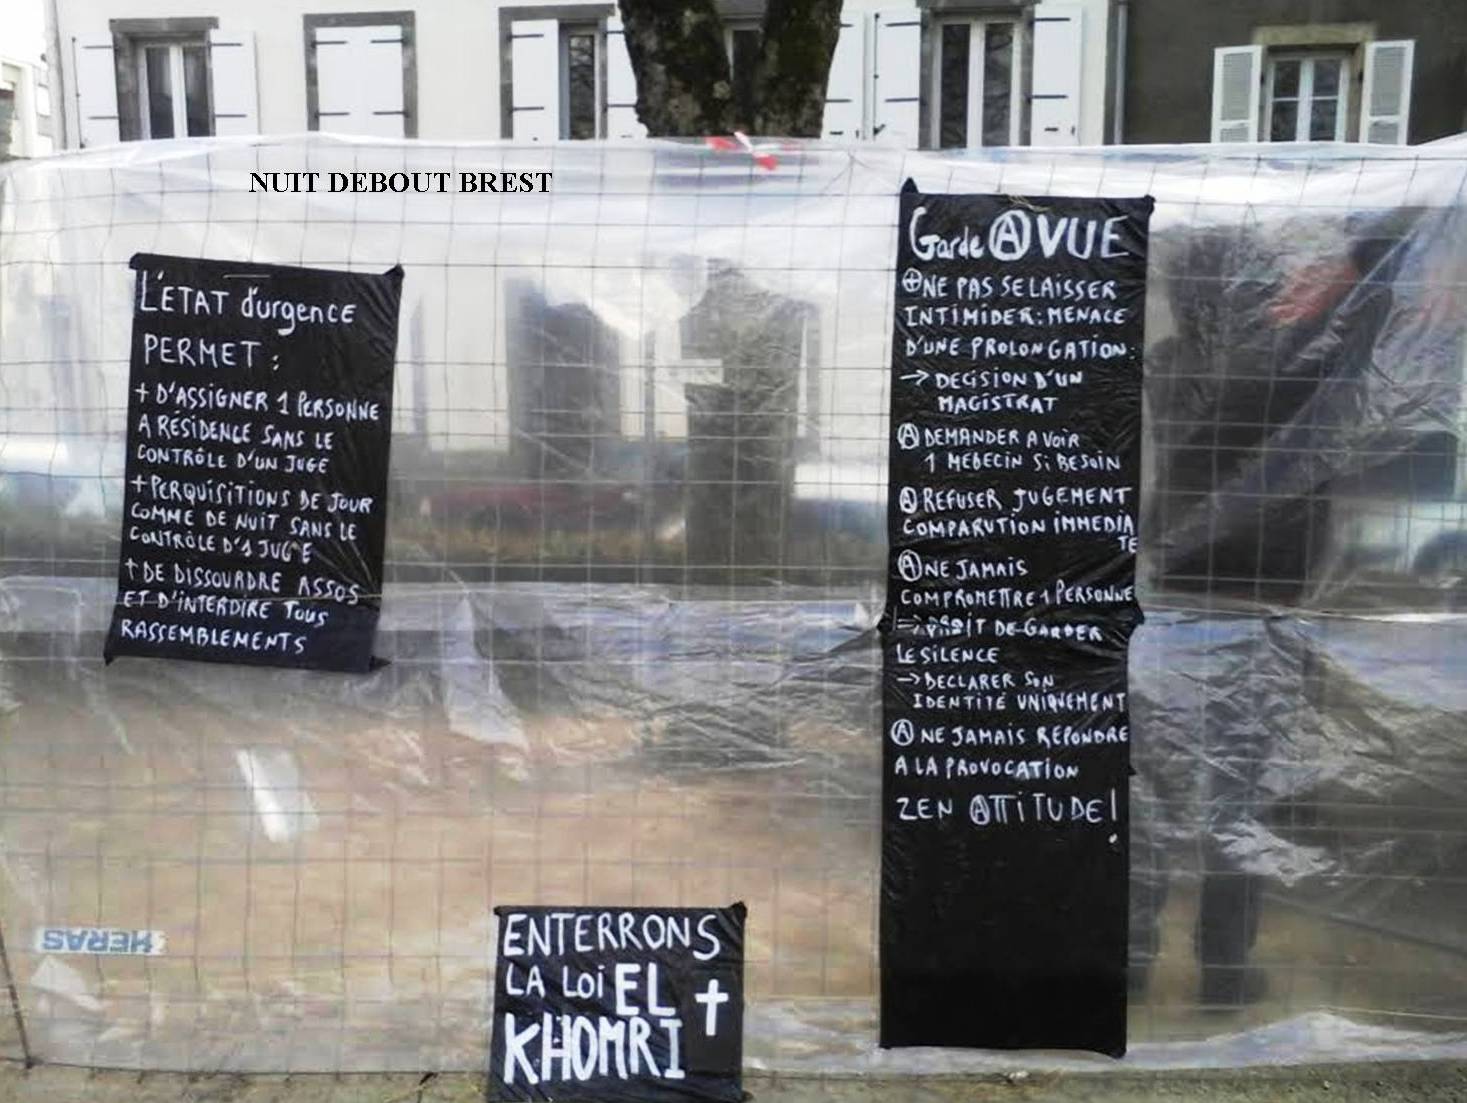 NUIT DEBOUT BREST
L'ETAT d'urgence
PERMET :
+ D'ASSIGNER 1 PERSONNE
A RÉSIDENCE SANS LE
CONTRÔLE D'UN JUGE
+ PERQUISITIONS DE JOUR
COMME DE NUIT SANS LE
CONTRÔLE D'1 JUGE
+ DE DISSOUDRE ASSOS
ET D'INTERDIRE TOUS
RASSEMBLEMENTS
Garde Ⓐ VUE
NE PAS SE LAISSER
INTIMIDER : MENACE
D'UNE PROLONGATION :
→ DECISION D'UN
MAGISTRAT
Ⓐ DEMANDER A VOIR
1 MEDECIN Si BESOIN
Ⓐ REFUSER JUGEMENT
COMPARUTION IMMEDIA
TE
Ⓐ NE JAMAIS
COMPROMETTRE 1 PERSONNE
→ DROIT DE GARDER
LE SILENCE
→ DECLARER SON
IDENTITÉ UNIQUEMENT
Ⓐ NE JAMAIS RÉPONDRE
A LA PROVOCATION
ZEN ⒶTTITUDE !
ENTERRONS
LA LOi EL
KHOMRI †
HERAS